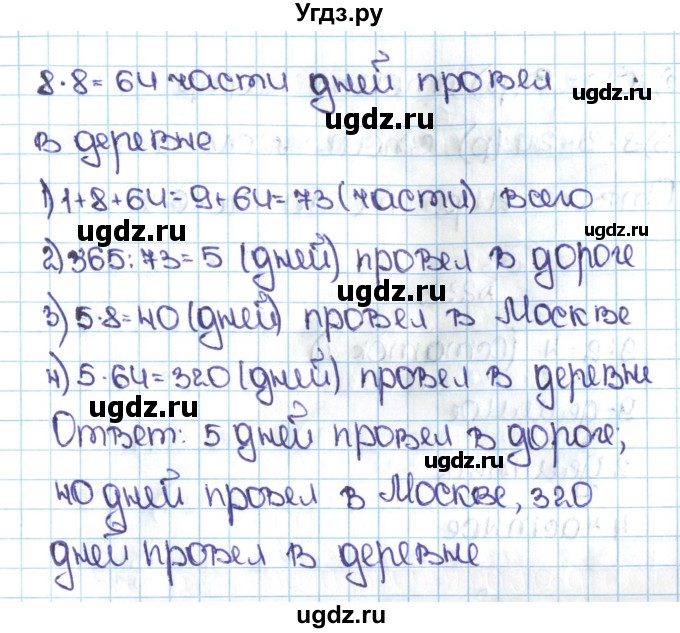 Угдз.ру
8·8=64 части дней провел
ugdz.ru
ugdz.ru
в деревне
ugdz.ru
1) 1+8+64=9+64=73 (части) всего
ugdz.ru
2) 365:73=5 (дней) провел в дороге
ugdz.ru
3) 5·8=40 (дней) провел в Москве
4) 5·64=320 (дней) провел в деревне
ugdz.ru
Ответ: 5 дней провел в дороге;
ugdz.ru
40 дней провел в Москве, 320
ugdz.ru
дней провел в деревне
ugdz.ru